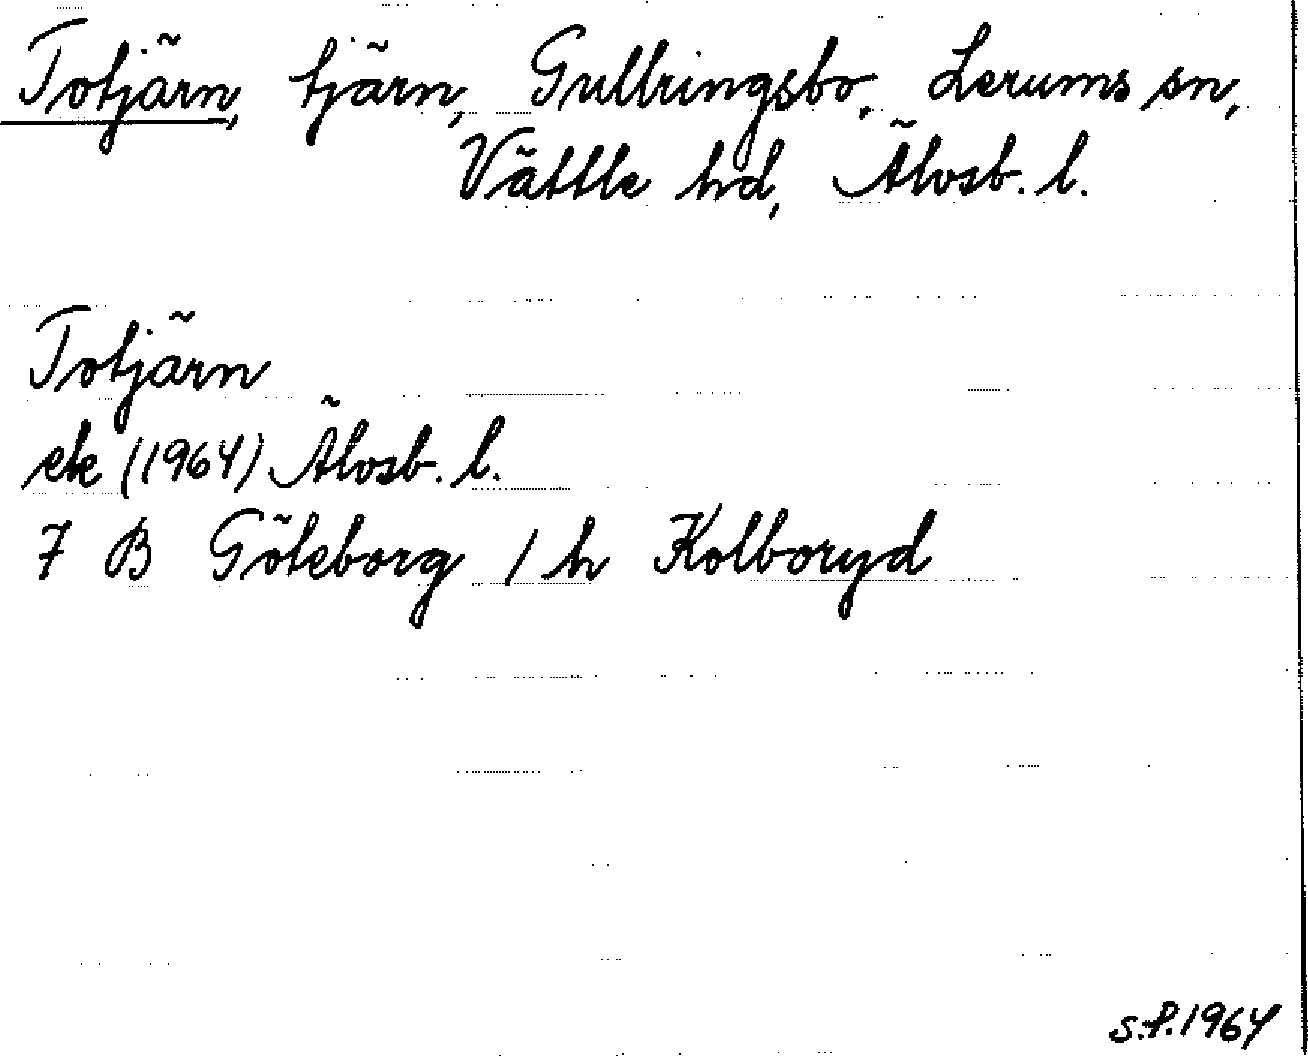 Totjärn, tjärn, Gullringsbo, Lerums sn,
Vättle hd, Älvsb. l.
Totjärn
ek (1964) Älvsb. l.
7 B Göteborg 1 h Kolboryd
S.F. 1964